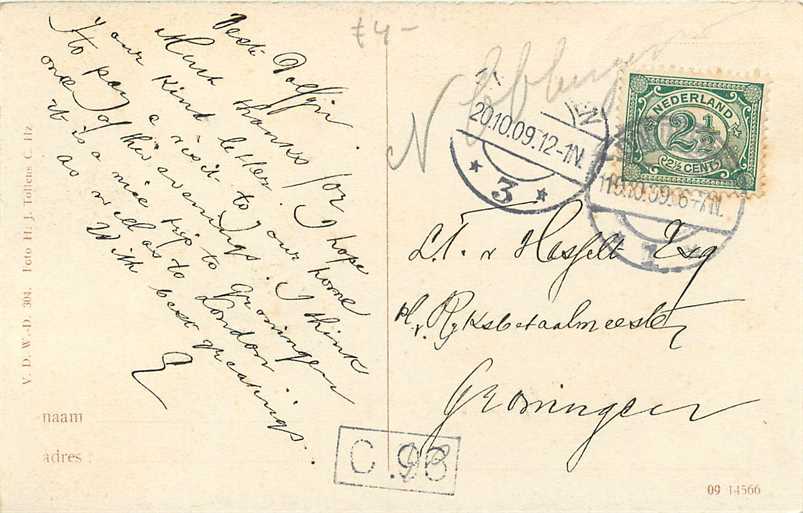 £4-
Beste Dolfijn.
Much thanks for
your kind letter. I hope
to pay a visit to your home
one of this evenings. I think
it is a nice trip to Groningen
as well as to London.
With best greetings..
V. D. W.-D. 304. Foto H. J. Tollens C. Hz
naam
adres :
N
20.10.09.12-1N.
* 3 *
NEDERLAND
2½
2½ CENT
19.10.09.6-7N.
1
L.T. v Hasselt Esq
Rijksbetaalmeester
Groningen
C.93
09 14566